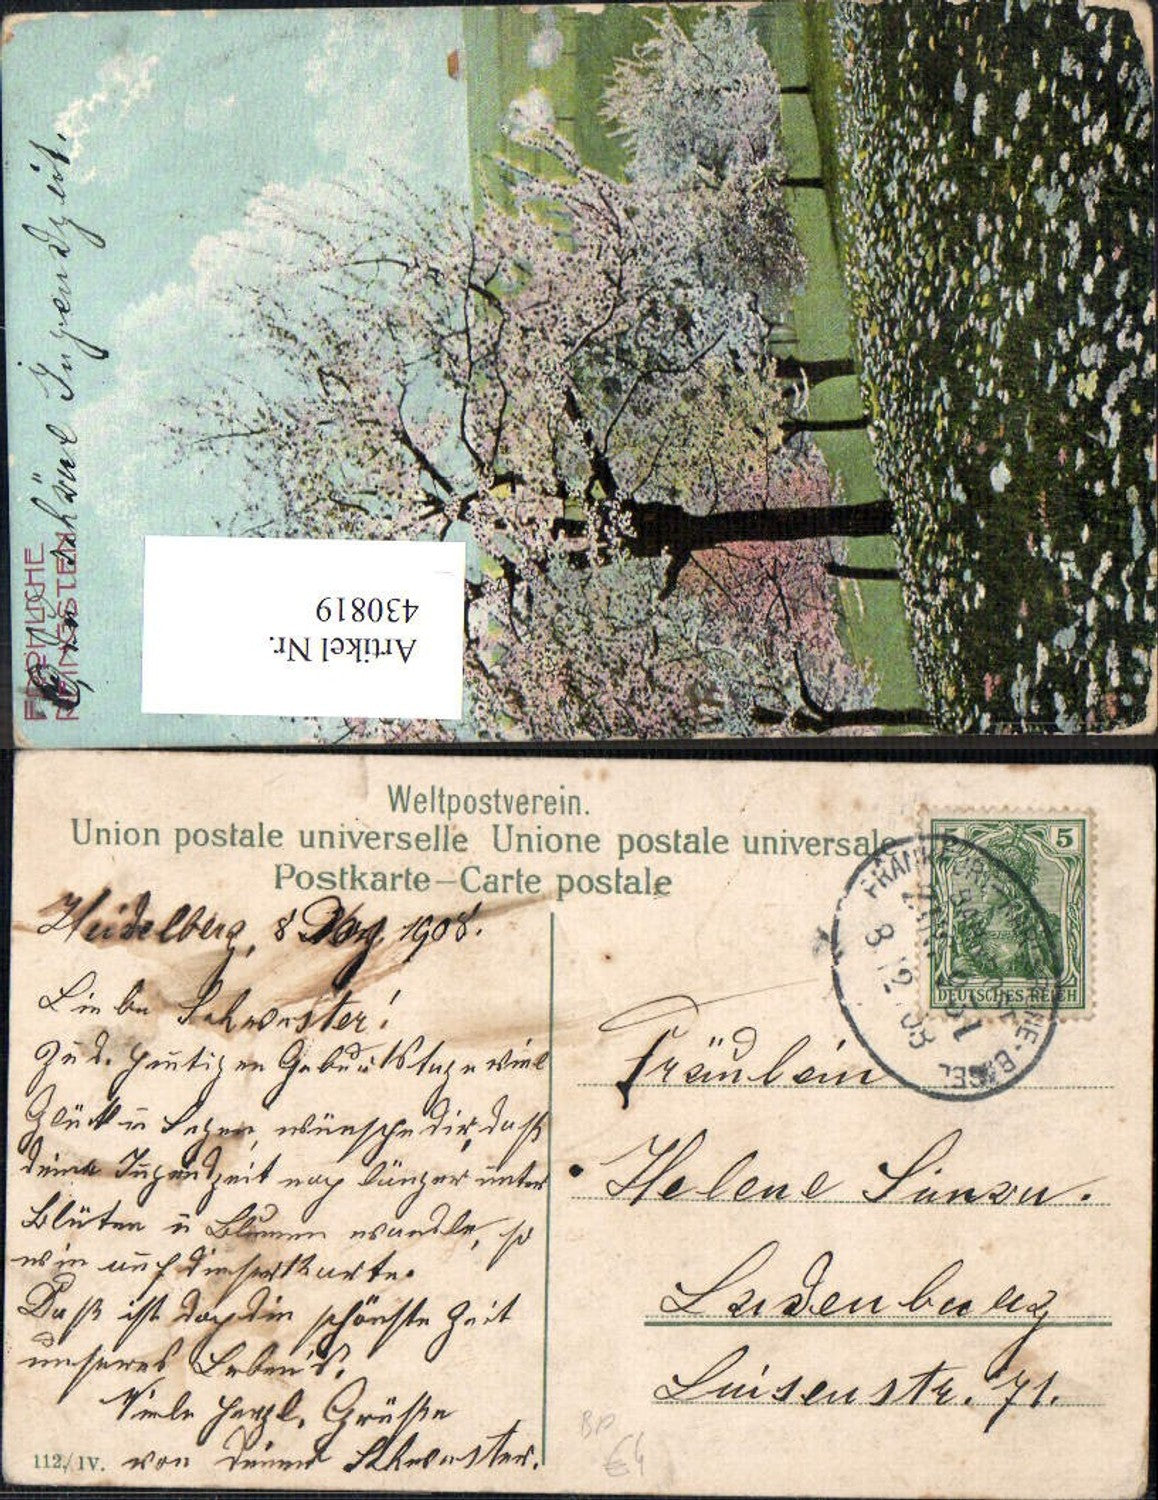 FRÖHLICHE
PFINGSTEN
schöne Jugendzeit.
Artikel Nr.
430819
Weltpostverein.
Union postale universelle Unione postale universale
Postkarte – Carte postale
5
DEUTSCHES REICH
8 12 08
BASEL
Heidelberg, 8 Dez. 1908.
Liebe Schwester!
Zu d. heutigen Geburtstage viel
Glück u Segen, wünsche dir, daß
deine Jugendzeit noch länger unter
Blüten u Blumen wandle, so
wie auf dieser Karte.
Daß ist doch die schönste Zeit
unseres Leben's.
Viele herzl. Grüße
von deiner Schwester.
112./IV.
Fräulein
Helene
Ladenburg
Luisenstr. 71.